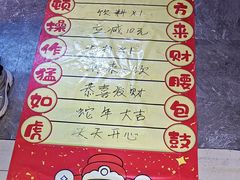 赖 饮料x1 方
操 立减10元 来
作 x1 财
猛 腰
如 恭喜发财 包
虎 蛇年大吉 鼓
天天开心